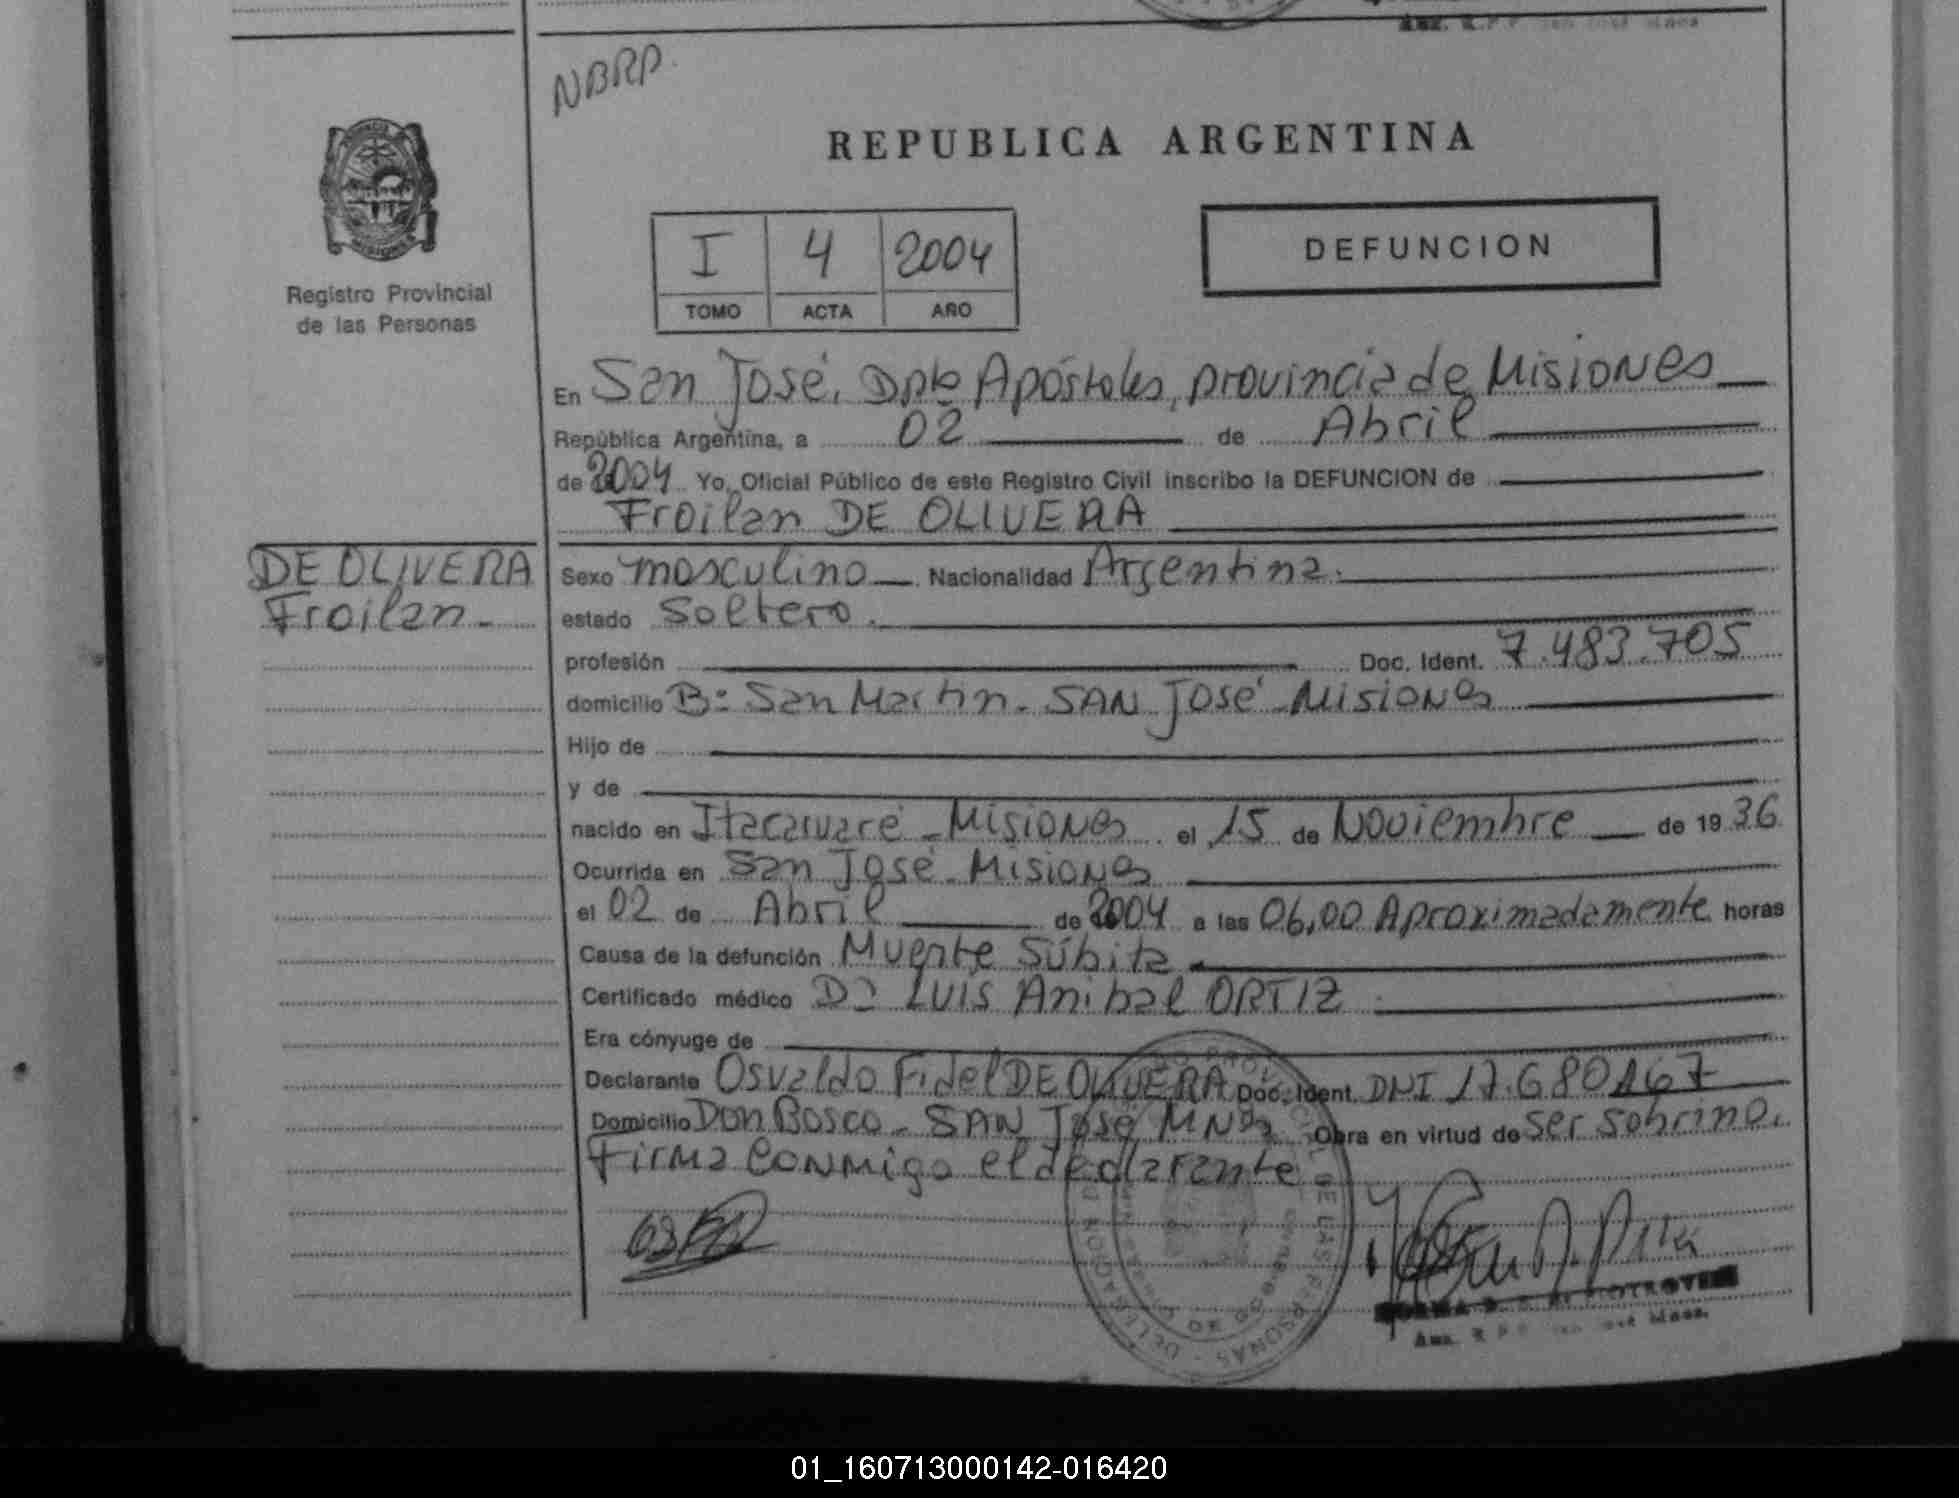 NBRP.
REPUBLICA ARGENTINA
MISIONES
Registro Provincial
de las Personas
I 4 2004
TOMO ACTA AÑO
DEFUNCION
En San José, Dpto Apóstoles, provincia de Misiones
República Argentina, a 02 de Abril
de 2004 Yo, Oficial Público de este Registro Civil inscribo la DEFUNCION de
Froilan DE OLIVERA
DE OLIVERA
Froilan.
Sexo masculino Nacionalidad Argentina.
estado Soltero.
profesión Doc. Ident. 7.483.705
domicilio B: San Martin - SAN José - Misiones
Hijo de
y de
nacido en Itacaruaré - Misiones el 15 de Noviembre de 1936
Ocurrida en San José - Misiones
el 02 de Abril de 2004 a las 06,00 Aproximadamente horas
Causa de la defunción Muerte Súbita
Certificado médico Dr LUIS Anibal ORTIZ
Era cónyuge de
Declarante Osvaldo Fidel DE OLIVERA Doc. Ident. DNI 17.680167
Domicilio Don Bosco - SAN José Mnes Obra en virtud de ser sobrino.
Firma conmigo el declarante
DE LAS PERSONAS
01_160713000142-016420